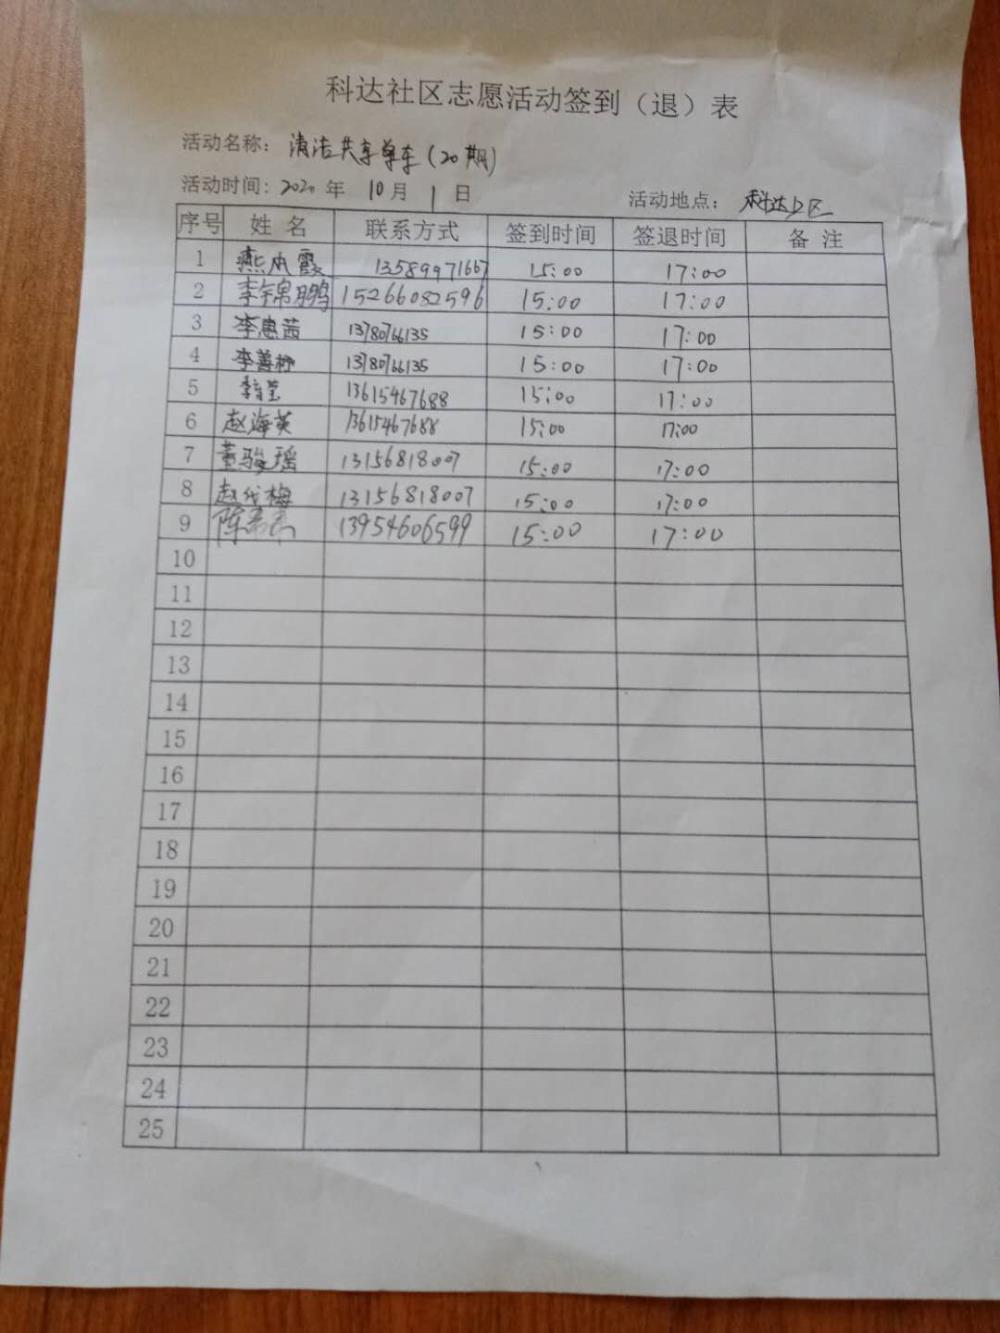 科达社区志愿活动签到（退）表
活动名称：清洁共享单车（20期）
活动时间：2020 年 10 月 1 日 活动地点：科达小区
序号 姓 名 联系方式 签到时间 签退时间 备 注
1 燕 霞 13589971667 15:00 17:00
2 李锦鹏 15266082596 15:00 17:00
3 李惠茜 13780766135 15:00 17:00
4 李善 13780766135 15:00 17:00
5 李 莹 13615467688 15:00 17:00
6 赵海英 13615467688 15:00 17:00
7 董骏瑶 13156818007 15:00 17:00
8 赵代梅 13156818007 15:00 17:00
9 陈 13954606599 15:00 17:00
10
11
12
13
14
15
16
17
18
19
20
21
22
23
24
25